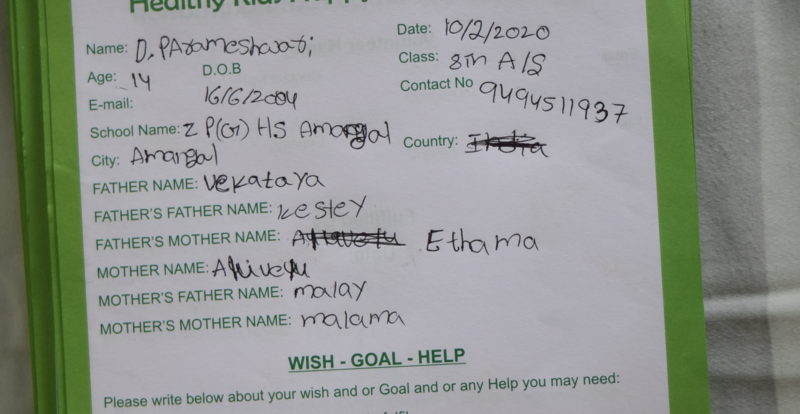 Healthy Kids Happy
Name: D. PArameshwari Date: 10/2/2020
Age: 14 D.O.B 16/6/2004 Class: 8th A/S
E-mail: Contact No 9494511937
School Name: Z P(G) HS Amangal Country:
City: Amangal
FATHER NAME: Vekataya
FATHER'S FATHER NAME: Kestey
FATHER'S MOTHER NAME: Ethama
MOTHER NAME:
MOTHER'S FATHER NAME: malay
MOTHER'S MOTHER NAME: malama
WISH - GOAL - HELP
Please write below about your wish and or Goal and or any Help you may need: